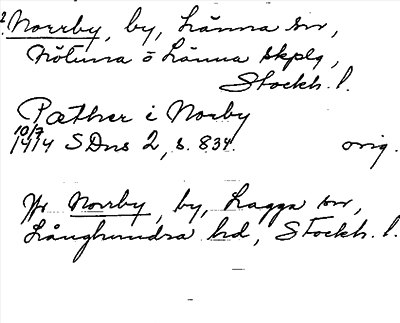 Norrby, by, Länna sn,
Närtuna o Länna skplg,
Stockh. l.
Pæther i Norby
10/7
1414 SDns 2, s. 834. orig.
Jfr Norrby, by, Lagga sn,
Långhundra hd, Stockh. l.